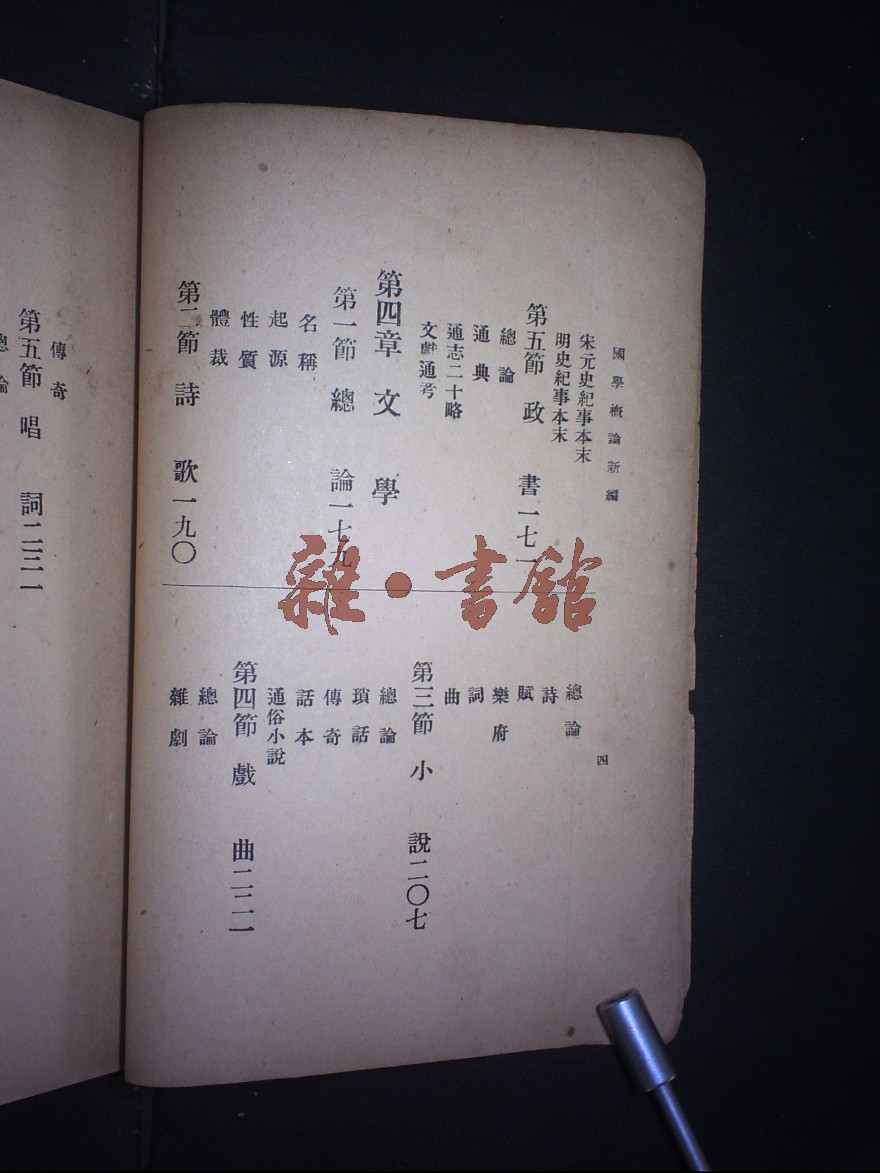 國學概論新編
四
宋元史紀事本末
明史紀事本末
第五節 政 書一七一
總論
通典
通志二十略
文獻通考
第四章 文 學
第一節 總 論一七九
名稱
起源
性質
體裁
第二節 詩 歌一九〇
總論
詩
賦
樂府
詞
曲
第三節 小 說二〇七
總論
瑣話
傳奇
話本
通俗小說
第四節 戲 曲二二一
總論
雜劇
傳奇
第五節 唱 詞二三一
總論
雜·書館